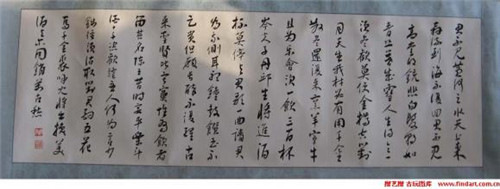 君不見黃河之水天上來
奔流到海不復回君不見
高堂明鏡悲白髮朝如
青絲暮成雪人生得意
須盡歡莫使金樽空對
月天生我材必有用千金
散盡還復來烹羊宰牛
且為樂會須一飲三百杯
岑夫子丹邱生將進酒
杯莫停與君歌一曲請君
為我側耳聽鐘鼓饌玉不
足貴但願長醉不復醒古
來聖賢皆寂寞惟有飲者
留其名陳王昔時宴平樂斗
酒十千恣歡謔主人何為言少
錢徑須沽取對君酌五花
馬千金裘呼兒將出換美
酒與爾同銷萬古愁
搜艺搜 古玩图库 www.findart.com.cn